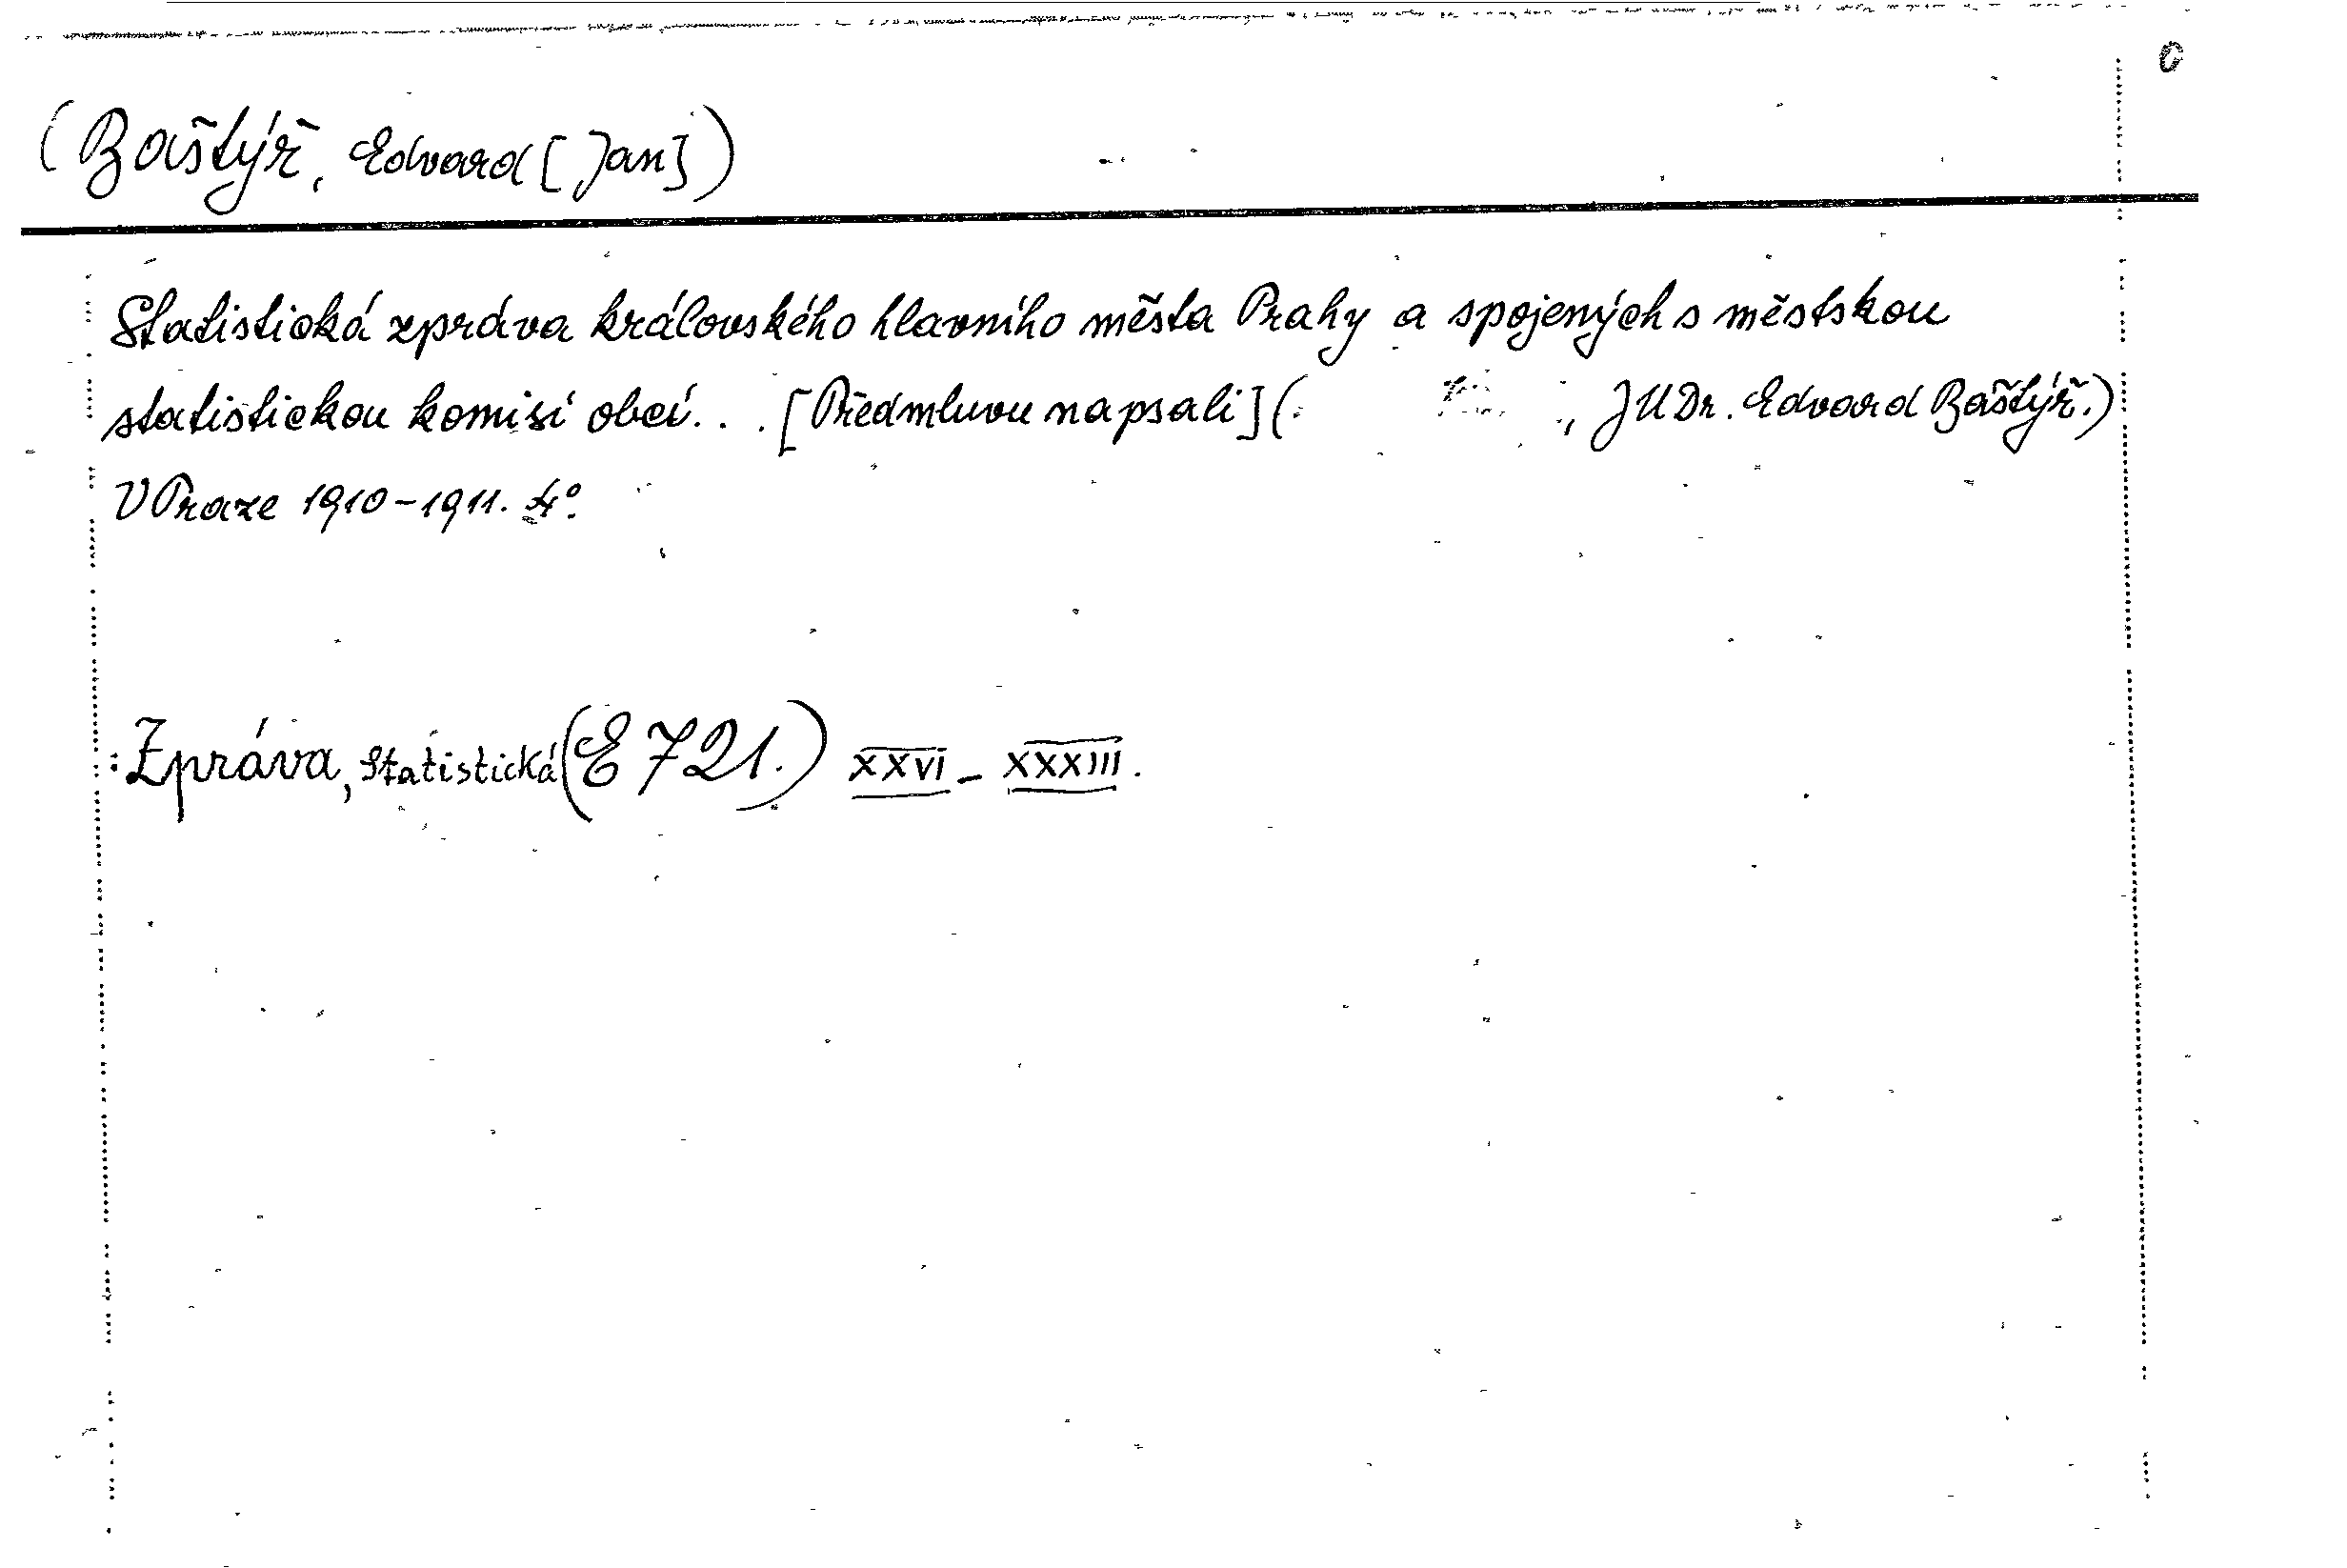 (Baštýř, Edvard [Jan])
Statistická zpráva královského hlavního města Prahy a spojených s městskou
statistickou komisí obcí... [Předmluvu napsali] ( , JUDr. Edvard Baštýř.)
V Praze 1910-1911. 4°.
: Zpráva, statistická (E 721.) XXVI - XXXIII.